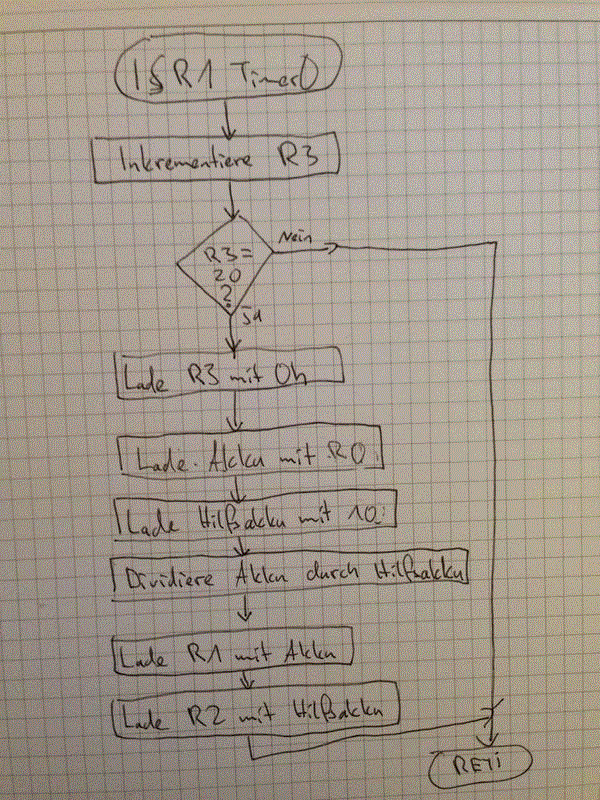 ISR1 Timer0
Inkrementiere R3
Nein
R3=
20
?
Ja
Lade R3 mit 0h
Lade Akku mit R0
Lade Hilfsakku mit 10
Dividiere Akku durch Hilfsakku
Lade R1 mit Akku
Lade R2 mit Hilfsakku
RETI